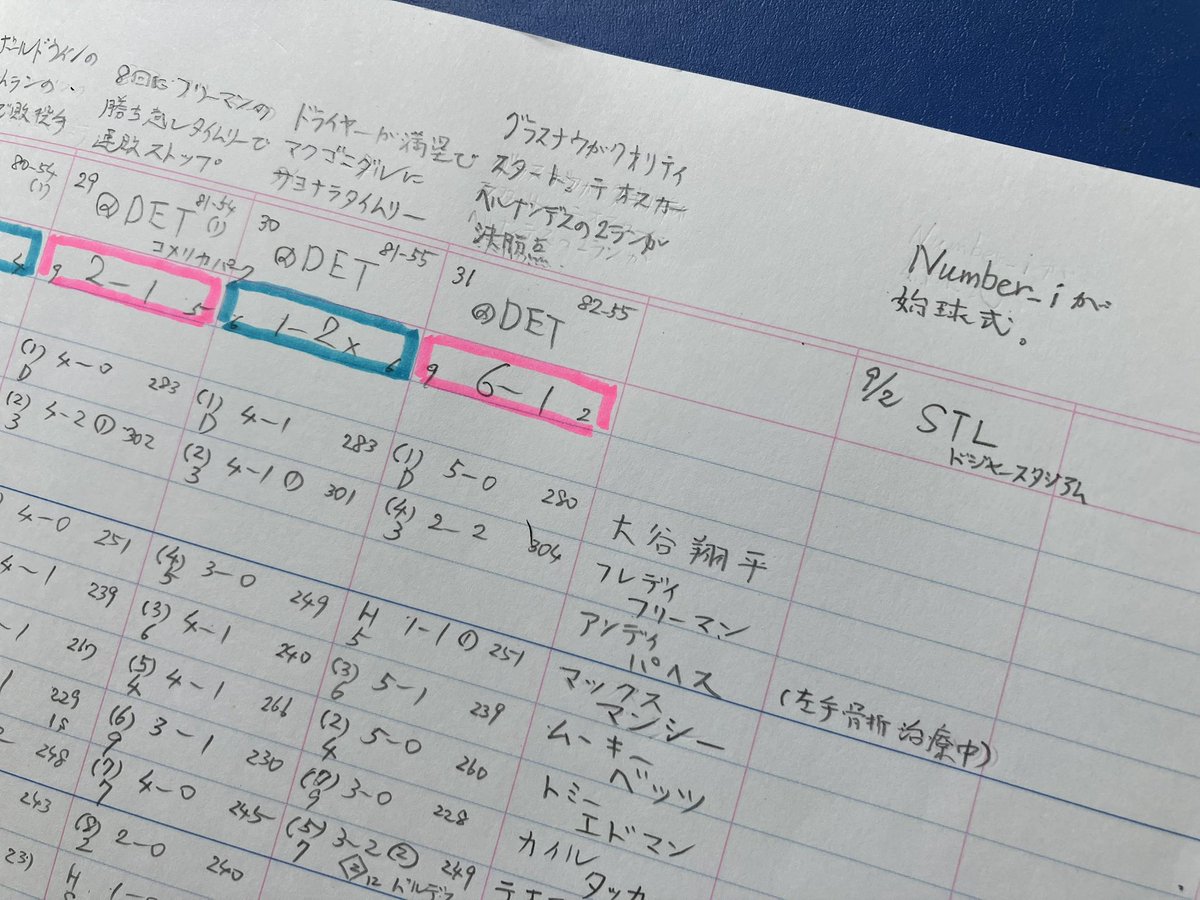 ゴールドウィンの
で敗投手
80-54
(1)
4
8回にフリーマンの
勝ち越しタイムリーで
連敗ストップ
29
@DET
81-54
(1)
コメリカパーク
9 2-1 5
ドライヤーが満塁で
マクゴニグルに
サヨナラタイムリー
30
81-55
@DET
6 1-2x 6
グラスナウがクオリティ
スタート。テオスカー
ヘルナンデスの2ランが
決勝点。
31
82-55
@DET
9 6-1 2
Number_iが
始球式。
9/2
STL
ドジャースタジアム
(1) D 4-0 283
(1) D 4-1 283
(1) D 5-0 280
大谷翔平
(2) 3 4-2 ① 302
(2) 3 4-1 ① 301
(4) 3 2-2 304
フレディ
フリーマン
4-0 251
(4) 5 3-0 249
H 5 1-1 ① 251
アンディ
パヘス
マックス
マンシー
(左手骨折治療中)
4-1 239
(3) 6 4-1 240
(3) 6 5-1 239
ムーキー
ベッツ
-1 267
(5) 4 4-1 266
(2) 4 5-0 260
トミー
エドマン
229
15
(6) 9 3-1 230
(7) 9 3-0 228
カイル
タッカ
248
(7) 7 4-0 245
(5) 7 3-2 ② 249
② 12
テオ
243
(8) 2 2-0 240
H